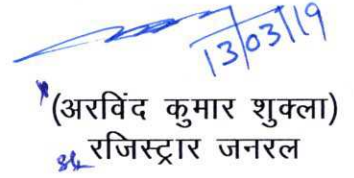 13/03/19
(अरविंद कुमार शुक्ला)
रजिस्ट्रार जनरल